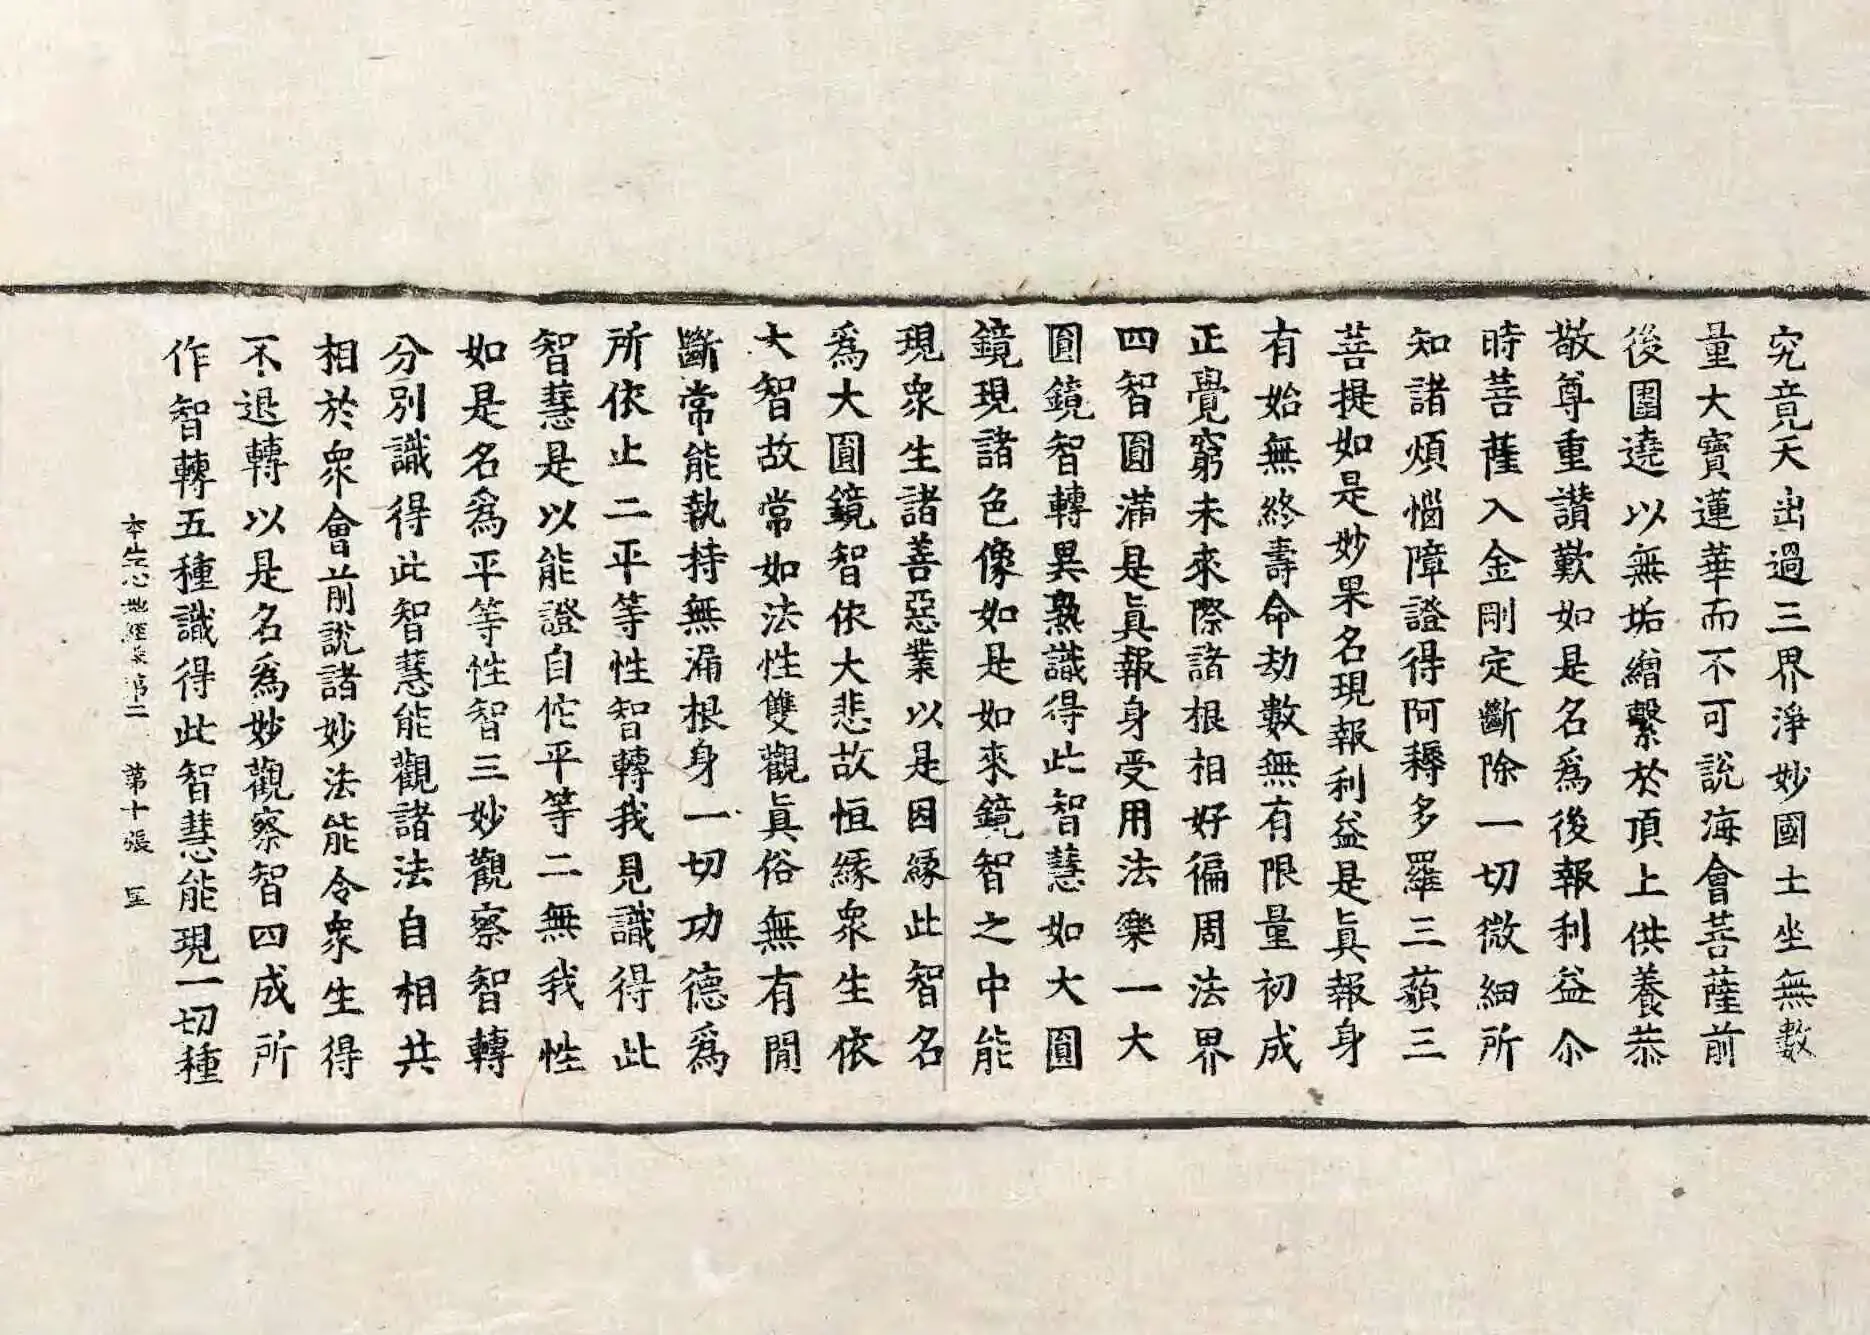 究竟天出過三界淨妙國土坐無數
量大寶蓮華而不可說海會菩薩前
後圍遶以無垢繒繫於頂上供養恭
敬尊重讚歎如是名爲後報利益尒
時菩薩入金剛定斷除一切微細所
知諸煩惱障證得阿耨多羅三藐三
菩提如是妙果名現報利益是眞報身
有始無終壽命劫數無有限量初成
正覺窮未來際諸根相好徧周法界
四智圓滿是眞報身受用法樂一大
圓鏡智轉異熟識得此智慧如大圓
鏡現諸色像如是如來鏡智之中能
現衆生諸善惡業以是因緣此智名
爲大圓鏡智依大悲故恒緣衆生依
大智故常如法性雙觀眞俗無有閒
斷常能執持無漏根身一切功德爲
所依止二平等性智轉我見識得此
智慧是以能證自佗平等二無我性
如是名爲平等性智三妙觀察智轉
分別識得此智慧能觀諸法自相共
相於衆會前說諸妙法能令衆生得
不退轉以是名爲妙觀察智四成所
作智轉五種識得此智慧能現一切種
本生心地經卷第二　第十張　𡈽